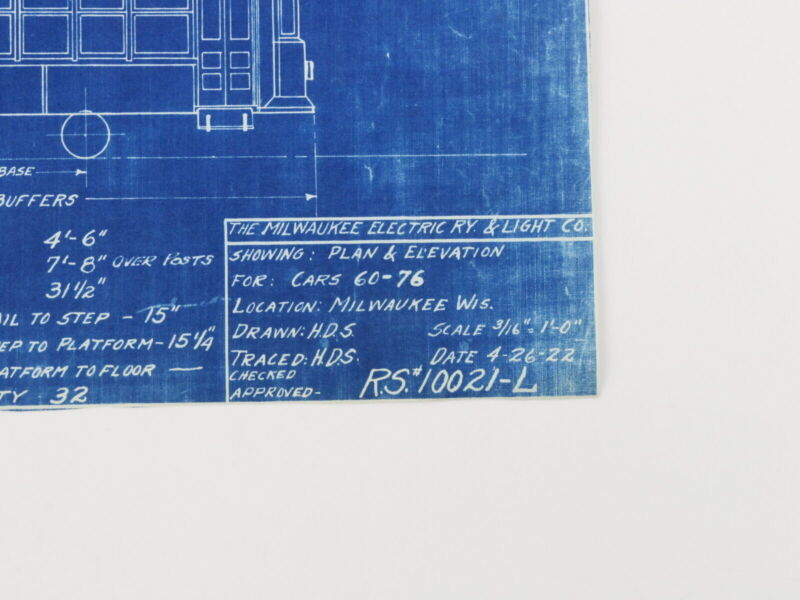 BASE
BUFFERS
4'-6"
7'-8" OVER POSTS
31 1/2"
AIL TO STEP - 15"
EP TO PLATFORM - 15 1/4"
ATFORM TO FLOOR —
TY 32
THE MILWAUKEE ELECTRIC RY. & LIGHT CO.
SHOWING: PLAN & ELEVATION
FOR: CARS 60-76
LOCATION: MILWAUKEE WIS.
DRAWN: H.D.S. SCALE 3/16" = 1'-0"
TRACED: H.D.S. DATE 4-26-22
CHECKED
APPROVED- R.S.#10021-L